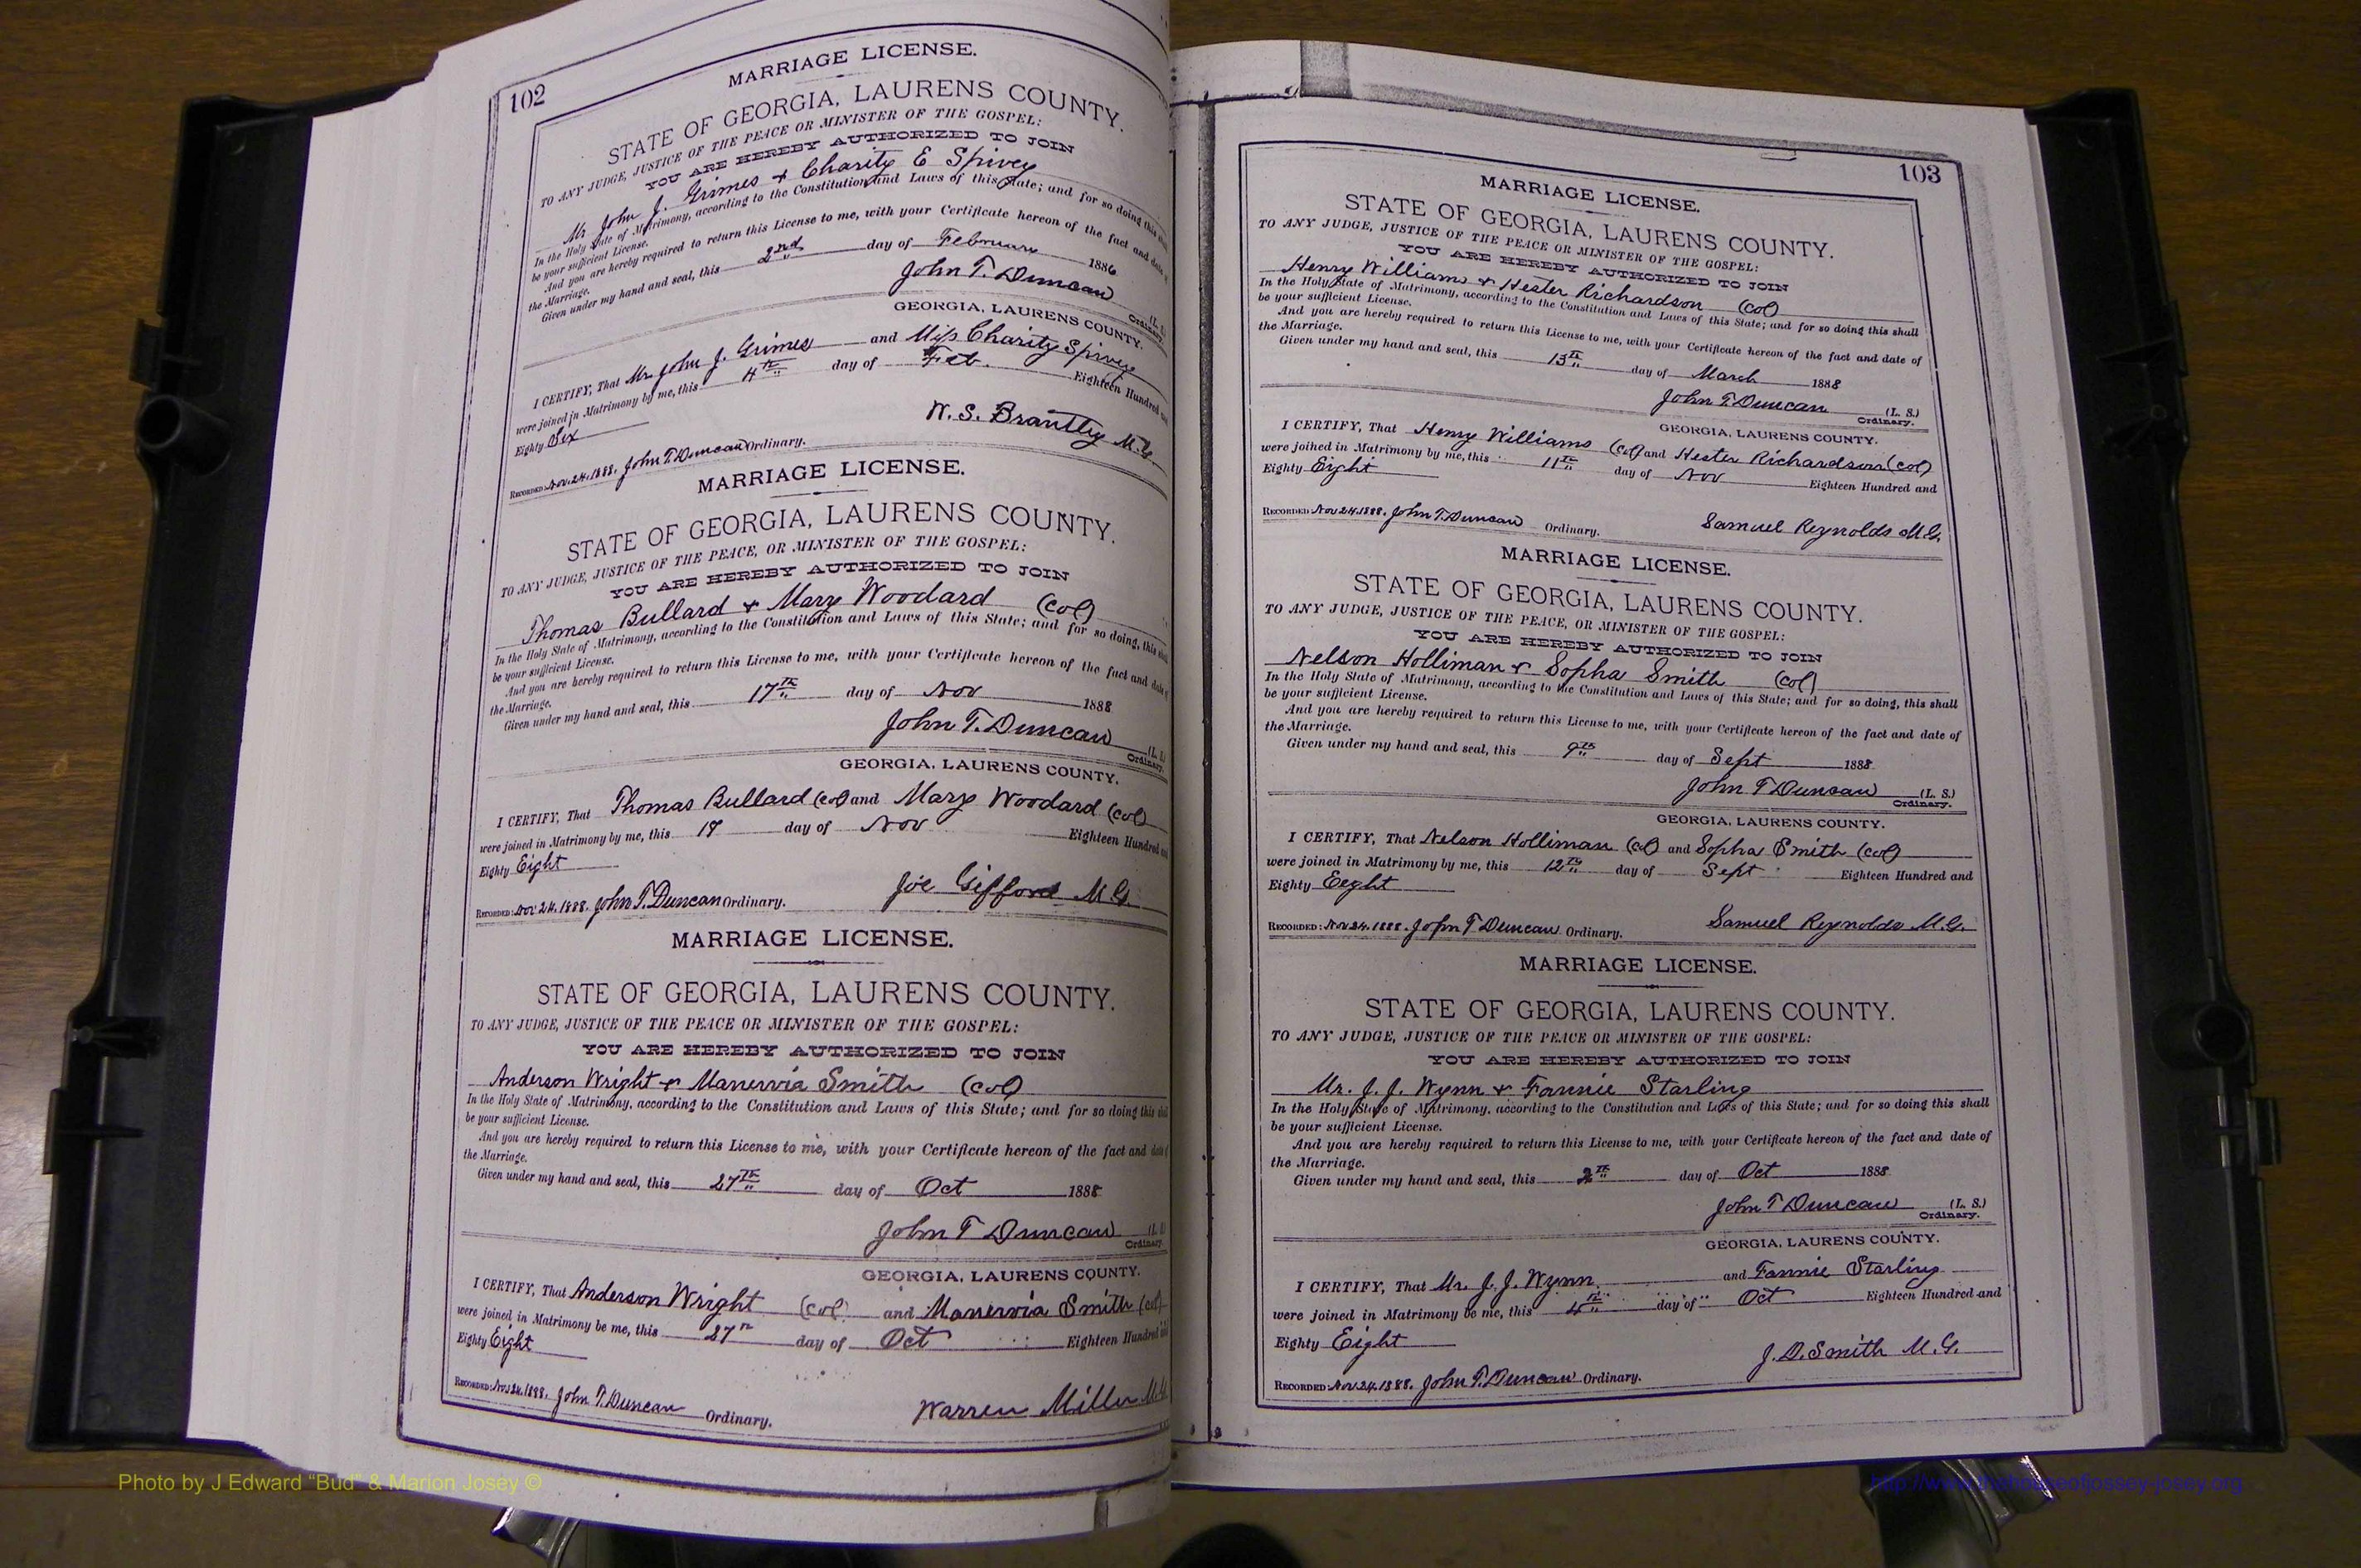 102
MARRIAGE LICENSE.
STATE OF GEORGIA, LAURENS COUNTY.
TO ANY JUDGE, JUSTICE OF THE PEACE OR MINISTER OF THE GOSPEL:
YOU ARE HEREBY AUTHORIZED TO JOIN
Mr John J. Grimes & Charity E Spivey
In the Holy State of Matrimony, according to the Constitution and Laws of this State; and for so doing this shall
be your sufficient License.
And you are hereby required to return this License to me, with your Certificate hereon of the fact and date of
the Marriage.
Given under my hand and seal, this 2nd day of February 1886
John T. Duncan (L. S.)
Ordinary.
GEORGIA, LAURENS COUNTY.
I CERTIFY, That Mr. John J. Grimes and Miss Charity Spivey
were joined in Matrimony by me, this 4th day of Feb. Eighteen Hundred and
Eighty Six
W. S. Brantley M.G.
RECORDED: Nov. 24. 1888. John T. Duncan Ordinary.
MARRIAGE LICENSE.
STATE OF GEORGIA, LAURENS COUNTY.
TO ANY JUDGE, JUSTICE OF THE PEACE, OR MINISTER OF THE GOSPEL:
YOU ARE HEREBY AUTHORIZED TO JOIN
Thomas Bullard & Mary Woodard (Col)
In the Holy State of Matrimony, according to the Constitution and Laws of this State; and for so doing, this shall
be your sufficient License.
And you are hereby required to return this License to me, with your Certificate hereon of the fact and date of
the Marriage.
Given under my hand and seal, this 17th day of Nov 1888
John T. Duncan (L. S.)
Ordinary.
GEORGIA, LAURENS COUNTY.
I CERTIFY, That Thomas Bullard (col) and Mary Woodard (col)
were joined in Matrimony by me, this day of Nov Eighteen Hundred and
Eighty Eight
Joe Gifford M.G.
RECORDED: Nov 24. 1888. John T. Duncan Ordinary.
MARRIAGE LICENSE.
STATE OF GEORGIA, LAURENS COUNTY.
TO ANY JUDGE, JUSTICE OF THE PEACE OR MINISTER OF THE GOSPEL:
YOU ARE HEREBY AUTHORIZED TO JOIN
Anderson Wright & Manervia Smith (Col)
In the Holy State of Matrimony, according to the Constitution and Laws of this State; and for so doing this shall
be your sufficient License.
And you are hereby required to return this License to me, with your Certificate hereon of the fact and date of
the Marriage.
Given under my hand and seal, this 27th day of Oct 1888
John T Duncan (L. S.)
Ordinary.
GEORGIA, LAURENS COUNTY.
I CERTIFY, That Anderson Wright (col) and Manervia Smith (col)
were joined in Matrimony be me, this 27th day of Oct Eighteen Hundred and
Eighty Eight
RECORDED: Nov 24. 1888. John T. Duncan Ordinary.
Warren Miller M.G.
103
MARRIAGE LICENSE.
STATE OF GEORGIA, LAURENS COUNTY.
TO ANY JUDGE, JUSTICE OF THE PEACE OR MINISTER OF THE GOSPEL:
YOU ARE HEREBY AUTHORIZED TO JOIN
Henry Williams & Hester Richardson (Col)
In the Holy State of Matrimony, according to the Constitution and Laws of this State; and for so doing this shall
be your sufficient License.
And you are hereby required to return this License to me, with your Certificate hereon of the fact and date of
the Marriage.
Given under my hand and seal, this 13th day of March 1888
John T Duncan (L. S.)
Ordinary.
GEORGIA, LAURENS COUNTY.
I CERTIFY, That Henry Williams (Col) and Hester Richardson (Col)
were joined in Matrimony by me, this 11th day of Nov Eighteen Hundred and
Eighty Eight
RECORDED: Nov 24. 1888. John T. Duncan Ordinary.
Samuel Reynolds M.G.
MARRIAGE LICENSE.
STATE OF GEORGIA, LAURENS COUNTY.
TO ANY JUDGE, JUSTICE OF THE PEACE, OR MINISTER OF THE GOSPEL:
YOU ARE HEREBY AUTHORIZED TO JOIN
Nelson Holliman & Sopha Smith (Col)
In the Holy State of Matrimony, according to the Constitution and Laws of this State; and for so doing, this shall
be your sufficient License.
And you are hereby required to return this License to me, with your Certificate hereon of the fact and date of
the Marriage.
Given under my hand and seal, this 9th day of Sept 1888
John T Duncan (L. S.)
Ordinary.
GEORGIA, LAURENS COUNTY.
I CERTIFY, That Nelson Holliman (col) and Sopha Smith (col)
were joined in Matrimony by me, this 12th day of Sept Eighteen Hundred and
Eighty Eeght
RECORDED: Nov. 24. 1888. John T Duncan Ordinary.
Samuel Reynolds M.G.
MARRIAGE LICENSE.
STATE OF GEORGIA, LAURENS COUNTY.
TO ANY JUDGE, JUSTICE OF THE PEACE OR MINISTER OF THE GOSPEL:
YOU ARE HEREBY AUTHORIZED TO JOIN
Mr. J. J. Wynn & Fannie Starling
In the Holy State of Matrimony, according to the Constitution and Laws of this State; and for so doing this shall
be your sufficient License.
And you are hereby required to return this License to me, with your Certificate hereon of the fact and date of
the Marriage.
Given under my hand and seal, this 2th day of Oct 1888
John T Duncan (L. S.)
Ordinary.
GEORGIA, LAURENS COUNTY.
I CERTIFY, That Mr. J. J. Wynn and Fannie Starling
were joined in Matrimony be me, this 4th day of Oct Eighteen Hundred and
Eighty Eight
J. D. Smith M.G.
RECORDED: Nov. 24. 1888. John T. Duncan Ordinary.
Photo by J Edward “Bud” & Marion Josey ©
http://www.thehouseofjossey-josey.org